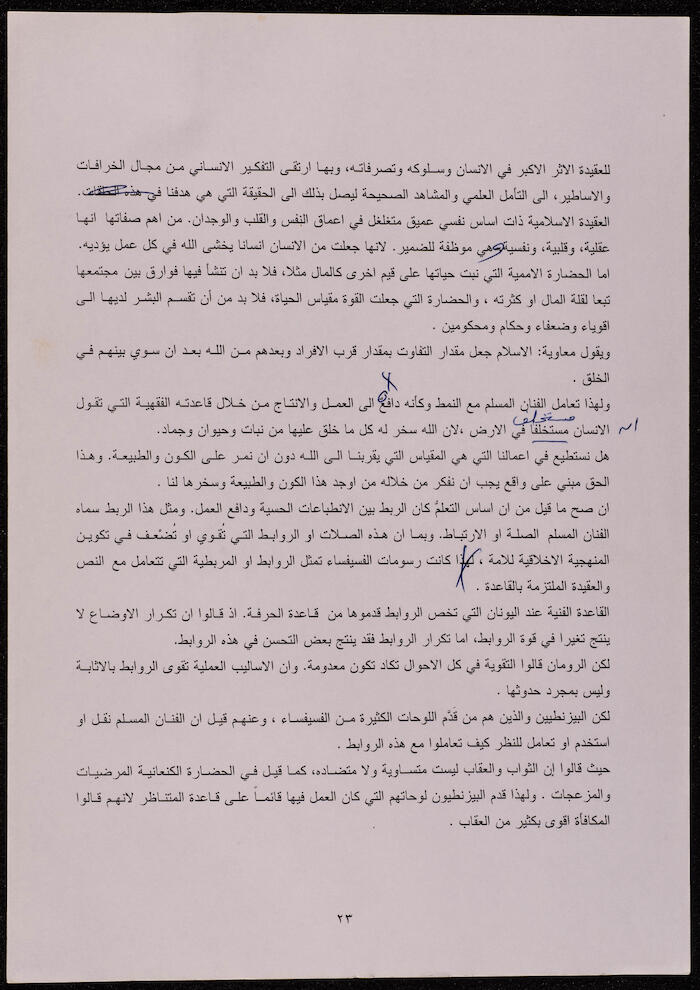 للعقيدة الاثر الاكبر في الانسان وسلوكه وتصرفاته، وبها ارتقى التفكير الانساني من مجال الخرافات
والاساطير، الى التأمل العلمي والمشاهد الصحيحة ليصل بذلك الى الحقيقة التي هي هدفنا في هذه .
العقيدة الاسلامية ذات اساس نفسي عميق متغلغل في اعماق النفس والقلب والوجدان. من اهم صفاتها انها
عقلية، وقلبية، ونفسية وهي موظفة للضمير. لانها جعلت من الانسان انسانا يخشى الله في كل عمل يؤديه.
اما الحضارة الاممية التي نبت حياتها على قيم اخرى كالمال مثلا، فلا بد ان تنشأ فيها فوارق بين مجتمعها
تبعا لقلة المال او كثرته ، والحضارة التي جعلت القوة مقياس الحياة، فلا بد من أن تقسم البشر لديها الى
اقوياء وضعفاء وحكام ومحكومين .
ويقول معاوية: الاسلام جعل مقدار التفاوت بمقدار قرب الافراد وبعدهم من الله بعد ان سوي بينهم في
الخلق .
ولهذا تعامل الفنان المسلم مع النمط وكأنه دافع الى العمل والانتاج من خلال قاعدته الفقهية التي تقول
مستخلف
الانسان مستخلفا في الارض ،لان الله سخر له كل ما خلق عليها من نبات وحيوان وجماد.
هل نستطيع في اعمالنا التي هي المقياس التي يقربنا الى الله دون ان نمر على الكون والطبيعة. وهذا
الحق مبني على واقع يجب ان نفكر من خلاله من اوجد هذا الكون والطبيعة وسخرها لنا .
ان صح ما قيل من ان اساس التعلمُّ كان الربط بين الانطباعات الحسية ودافع العمل. ومثل هذا الربط سماه
الفنان المسلم الصلة او الارتباط. وبما ان هذه الصلات او الروابط التي تُقوي او تُضعّف في تكوين
المنهجية الاخلاقية للامة ، لهذا كانت رسومات الفسيفساء تمثل الروابط او المربطية التي تتعامل مع النص
والعقيدة الملتزمة بالقاعدة .
القاعدة الفنية عند اليونان التي تخص الروابط قدموها من قاعدة الحرفة. اذ قالوا ان تكرار الاوضاع لا
ينتج تغيرا في قوة الروابط، اما تكرار الروابط فقد ينتج بعض التحسن في هذه الروابط.
لكن الرومان قالوا التقوية في كل الاحوال تكاد تكون معدومة. وان الاساليب العملية تقوى الروابط بالاثابة
وليس بمجرد حدوثها .
لكن البيزنطيين والذين هم من قَدَّم اللوحات الكثيرة من الفسيفساء ، وعنهم قيل ان الفنان المسلم نقل او
استخدم او تعامل للنظر كيف تعاملوا مع هذه الروابط .
حيث قالوا إن الثواب والعقاب ليست متساوية ولا متضاده، كما قيل في الحضارة الكنعانية المرضيات
والمزعجات . ولهذا قدم البيزنطيون لوحاتهم التي كان العمل فيها قائماً على قاعدة المتناظر لانهم قالوا
المكافأة اقوى بكثير من العقاب .
٢٣